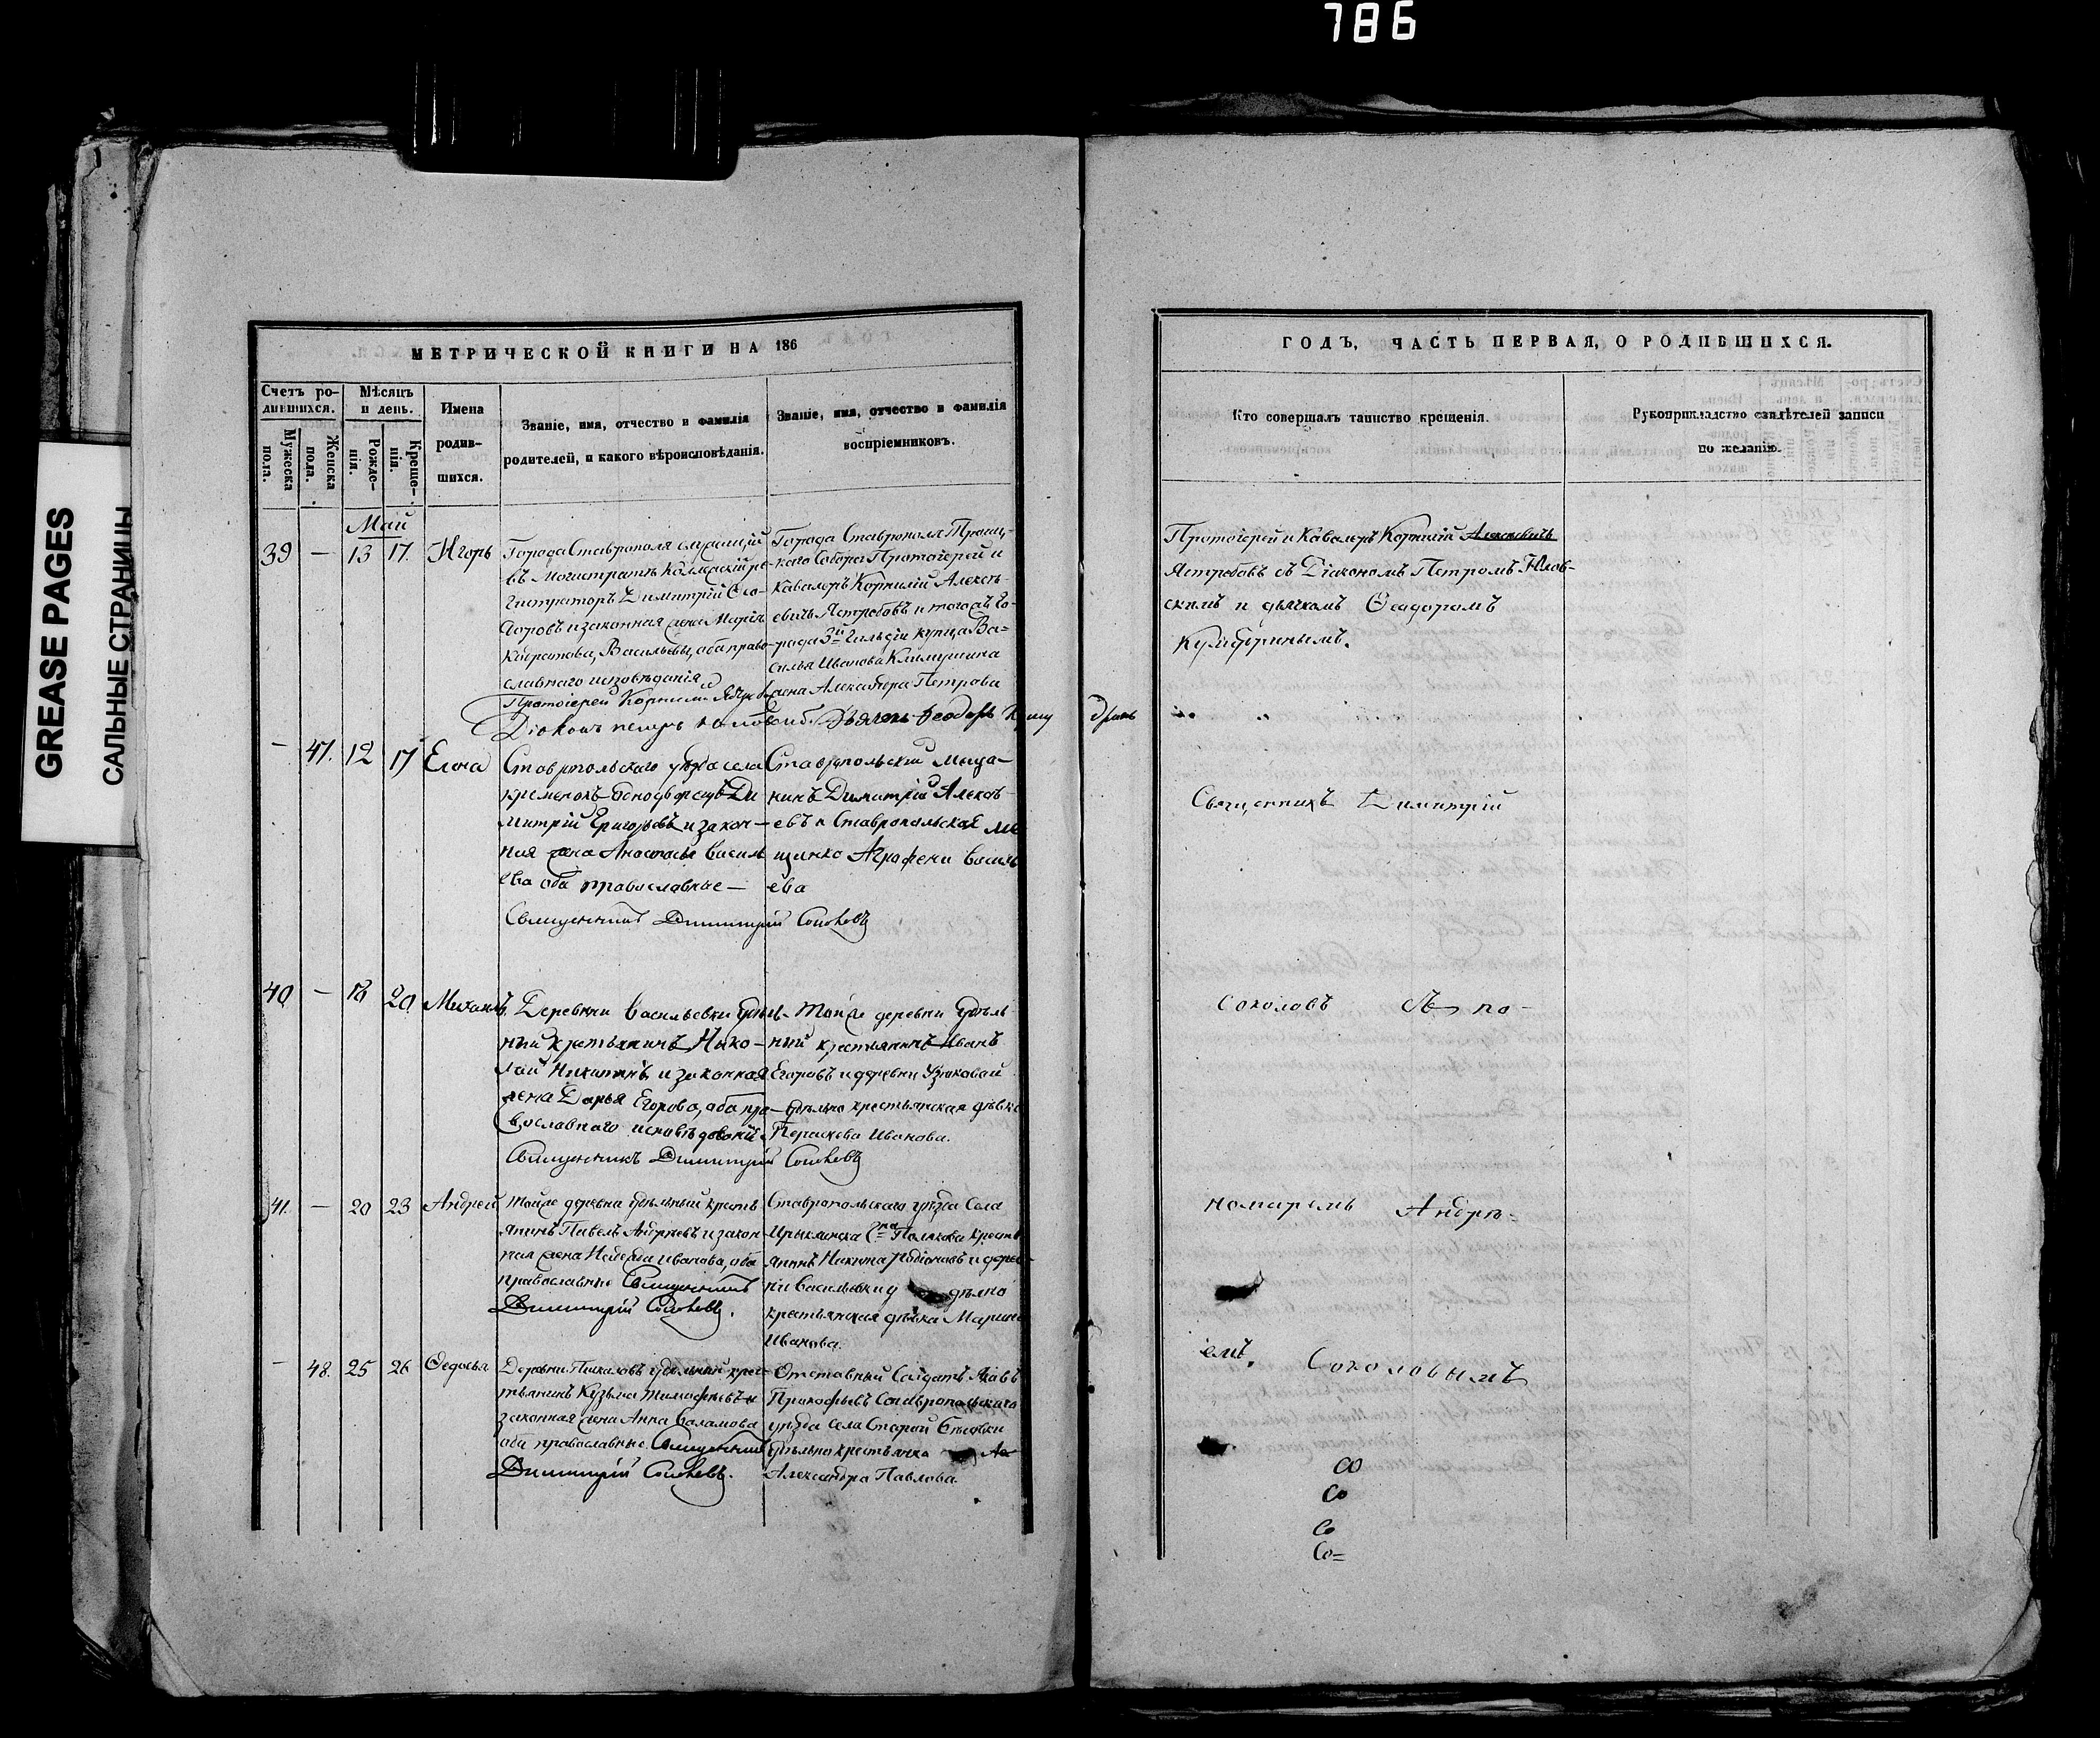 786
GREASE PAGES
САЛЬНЫЕ СТРАНИЦЫ
МЕТРИЧЕСКОЙ КНИГИ НА 186
Счетъ родившихся.
Мѣсяцъ и день.
Имена родившихся.
Званіе, имя, отчество и фамилія
родителей, и какого вѣроисповѣданія.
Званіе, имя, отчество и фамилія
воспріемниковъ.
Мужеска пола.
Женска пола.
Рожденія.
Крещенія.
Май
39 — 13 17. Игорь
Города Ставрополя служащій
въ Магистратѣ Коллежскій Ре-
гистраторъ Димитрій
и законная жена Марія
Васильева, оба право-
славнаго исповѣданія
Города Ставрополя Троиц-
каго Собора Протоіерей и
Кавалеръ Корнилій Алексѣ-
евичъ Ястребовъ и того жъ Го-
рода 3й Гильдіи купца Ва-
силья Иванова Климушина
жена Александра Петрова
Протоіерей Корнилій
Діаконъ Петръ Феодоръ
— 47. 12 17 Елена
Ставропольскаго уѣзда села
Кременокъ Ди
митрій Григорьевъ и закон-
ная жена Анастасія Василь
ева оба православные —
Ставропольский Мѣща-
нинъ Димитрій Алексѣ-
евъ и Ставропольская мѣ
щанка Агрофена Василь
ева
Священникъ Димитрій Соколовъ
40 — 18 20 Михаилъ
Деревни Васильевки удѣль-
ный крестьянинъ Нико-
лай Никитинъ и законная
жена Дарья Егорова, оба пра-
вославнаго исповѣданія
Той же деревни удѣль
ный крестьянинъ Иванъ
Егоровъ и деревни Узюковой
удѣльно крестьянская дѣвка
Параскева Иванова.
Священникъ Димитрій Соколовъ
41. — 20 23 Андрей
Той же деревни удѣльный кресть
янинъ Павелъ Андреевъ и закон
ная жена Иванова, оба
православные Священникъ
Димитрій Соколовъ.
Ставропольскаго уѣзда Села
Полякова кресть
янинъ Никита Родіоновъ и дерев-
ни Васильевки удѣльно
крестьянская дѣвка Марина
Иванова.
— 48. 25 26 Ѳедосья
Деревни удѣльный крес-
тьянинъ Кузьма Тимофѣевъ и
законная жена Анна
оба православные. Священникъ
Димитрій Соколовъ.
Отставный Солдатъ Яковъ
Прокофьевъ Ставропольскаго
уѣзда села Старой
удѣльно крестьянка
Александра Павлова.
ГОДЪ, ЧАСТЬ ПЕРВАЯ, О РОДИВШИХСЯ.
Кто совершалъ таинство крещенія.
Рукоприкладство свидѣтелей записи
по желанію.
Протоіерей и Кавалеръ Корнилій Алексѣевичъ
Ястребовъ съ Діакономъ Петромъ
скимъ и дьячкомъ Ѳеодоромъ
Священникъ Димитрій
Соколовъ съ по-
номаремъ Андрѣ-
емъ. Соколовымъ
со
Со
Со
Со=